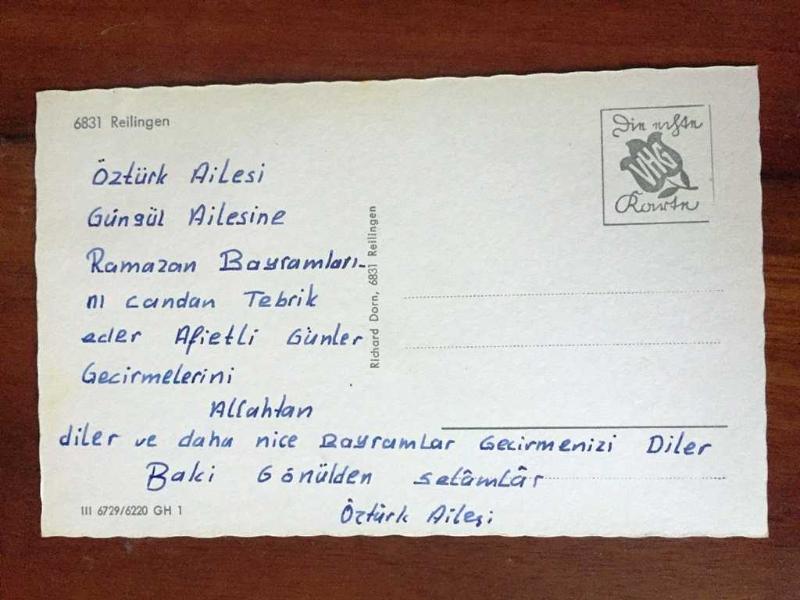 6831 Reilingen
Die echte
VHG
Karte
Öztürk Ailesi
Güngül Ailesine
Ramazan Bayramları-
nı candan Tebrik
eder Afietli Günler
Gecirmelerini
Allahtan
diler ve daha nice Bayramlar Gecirmenizi Diler
Baki Gönülden selâmlâr
Öztürk Ailesi
Richard Dorn, 6831 Reilingen
III 6729/6220 GH 1